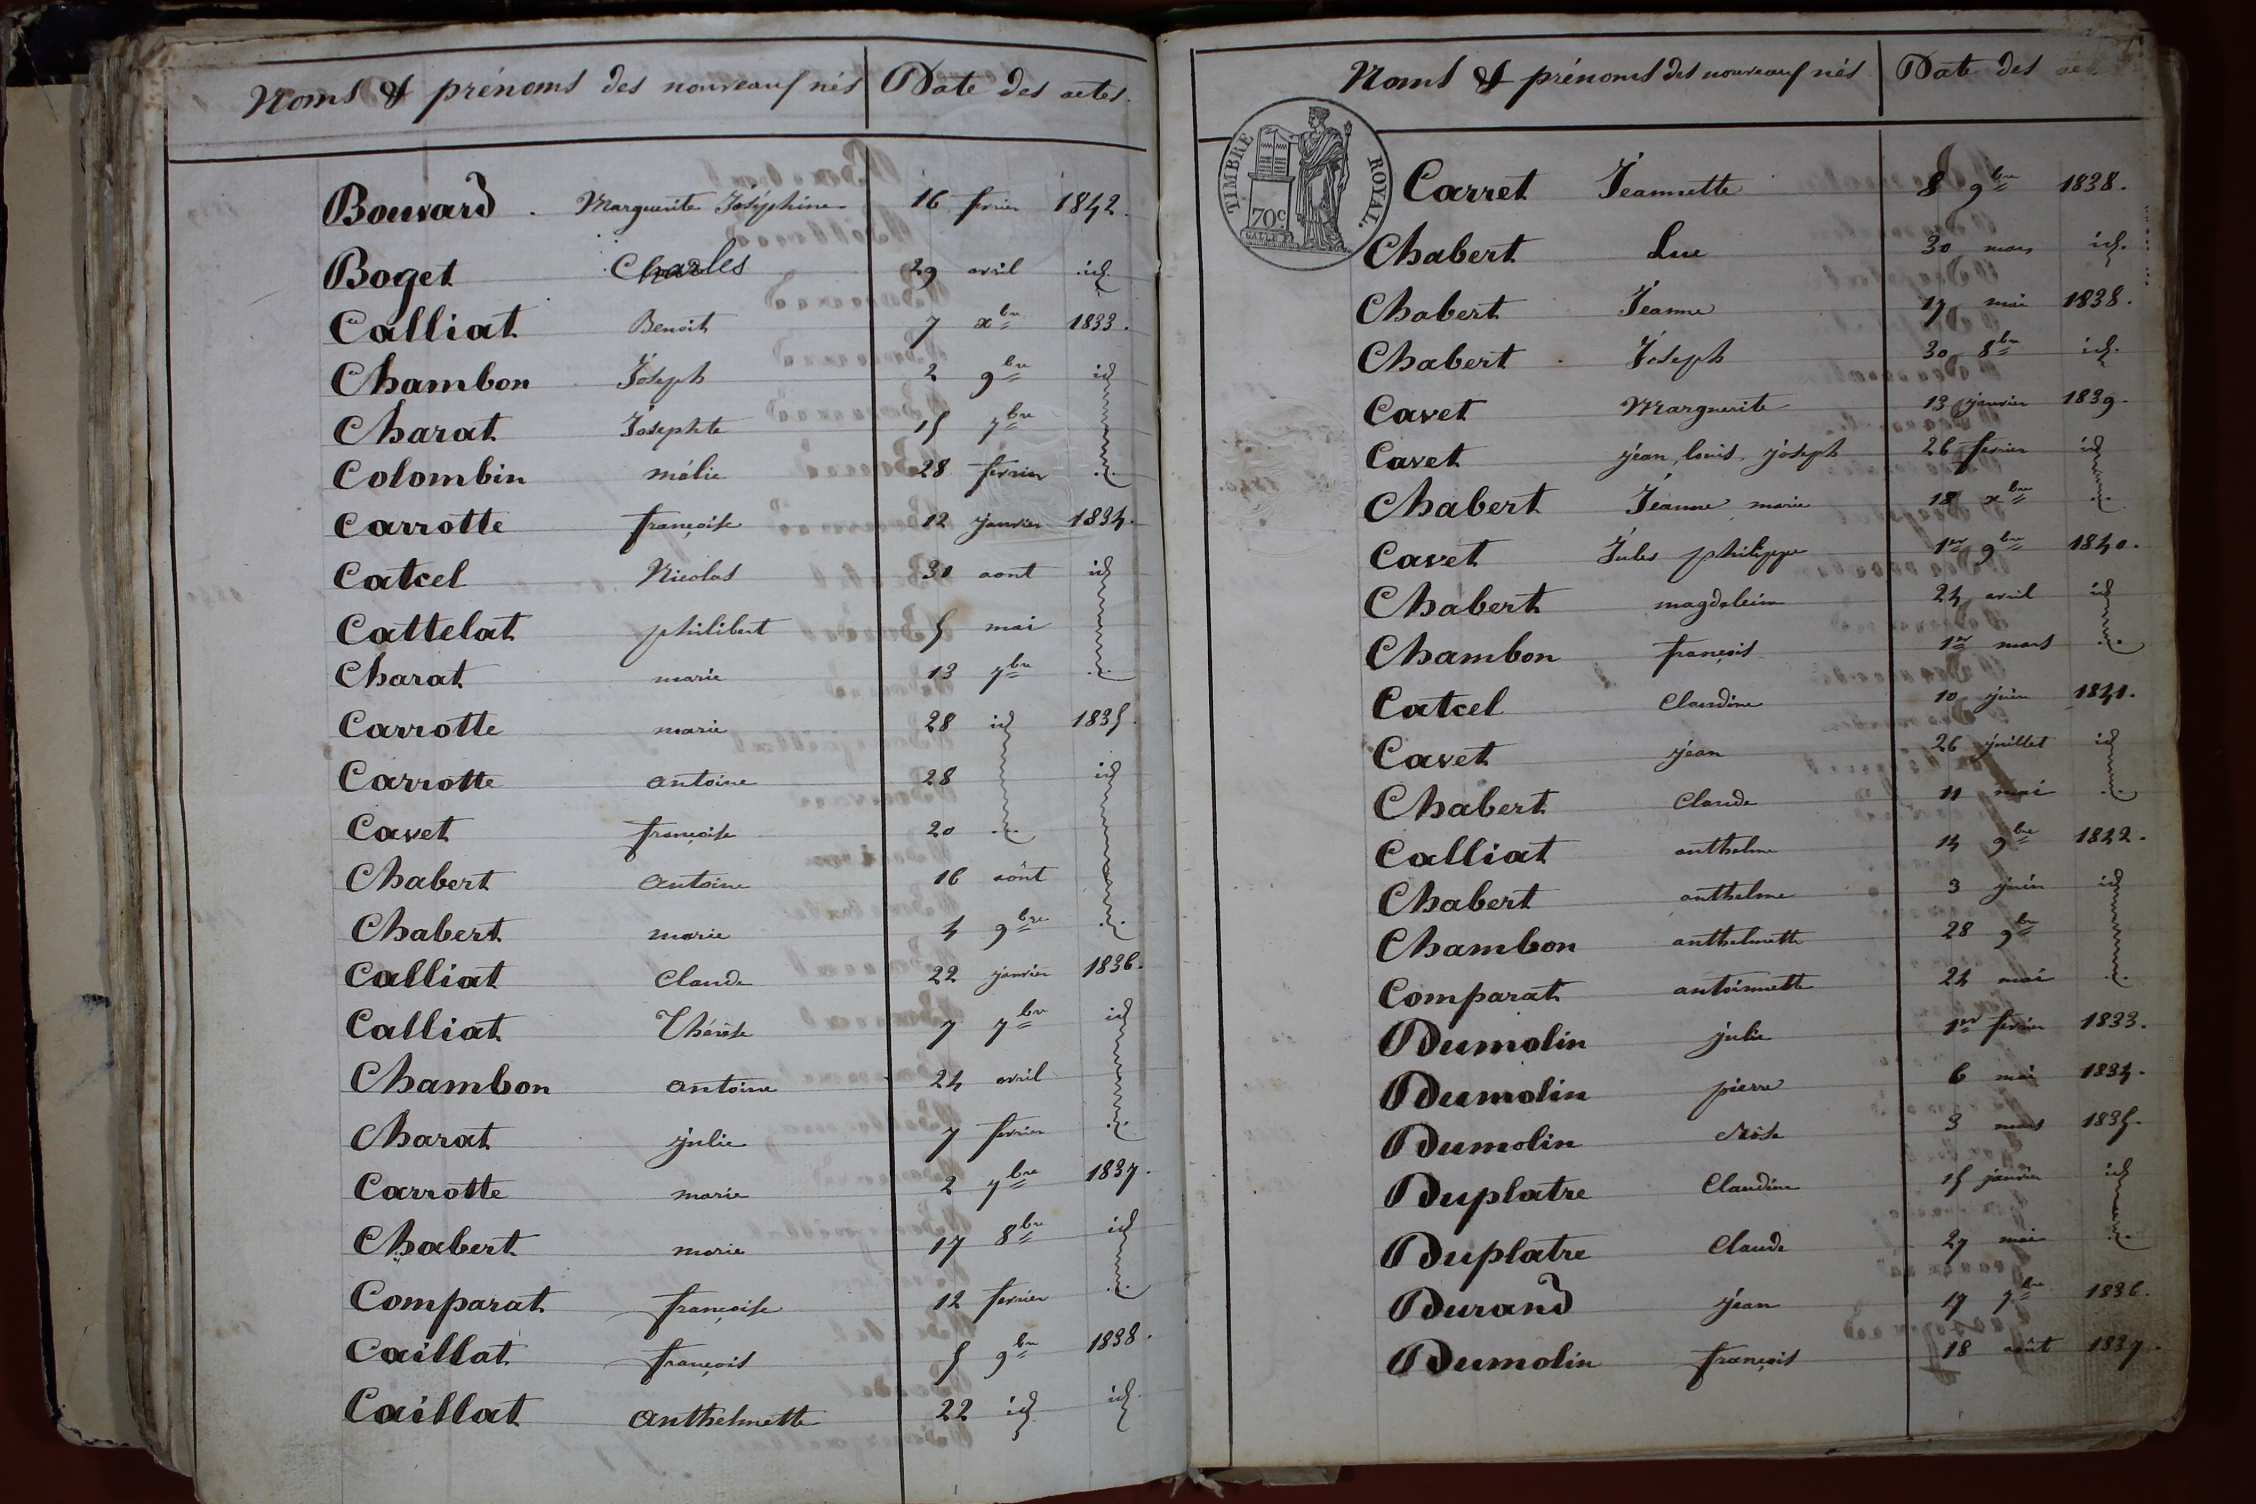 Noms & prénoms des nouveaux nés Date des actes.
Bouvard. Marguerite Joséphine 16 fevrier 1842.
Boget Charles 29 avril id.
Calliat Benoit 7 xbre 1833.
Chambon Joseph 2 9bre id
Charat Josephte 15 7bre
Colombin mélie 28 fevrier
Carrotte françoise 12 janvier 1834.
Catcel Nicolas 30 aout id
Cattelat philibert 5 mai
Charat marie 13 7bre
Carrotte marie 28 id 1835.
Carrotte antoine 28 id
Cavet françoise 20
Chabert antoine 16 aôut
Chabert marie 4 9bre
Calliat Claude 22 janvier 1836.
Calliat Thérèse 7 7bre id
Chambon antoine 24 avril
Charat julie 7 fevrier
Carrotte marie 2 7bre 1837.
Chabert marie 17 8bre id
Comparat françoise 12 fevrier
Caillat françois 5 9bre 1838.
Caillat anthelmette 22 id id.
Noms & prénoms des nouveaux nés Date des
TIMBRE ROYAL.
70c
Carret Jeannette 8 9bre 1838.
Chabert Luc 30 mars id.
Chabert Jeanne 17 mai 1838.
Chabert Joseph 30 8bre id.
Cavet Marguerite 13 janvier 1839.
Cavet jean, louis, joseph 26 fevrier id
Chabert Jeanne marie 18 xbre
Cavet Jules philippe 1er 9bre 1840.
Chabert magdeleine 24 avril id
Chambon françois 1er mars
Catcel Claudine 10 juin 1841.
Cavet jean 26 juillet id
Chabert Claude 11 mai
Calliat anthelme 14 9bre 1842.
Chabert anthelme 3 juin id
Chambon anthelmette 28 9bre
Comparat antoinette 24 mai
Dumolin julie 1er fevrier 1833.
Dumolin pierre 6 mai 1834.
Dumolin Rôse 3 mars 1835.
Duplatre Claudine 15 janvier id
Duplatre Claude 27 mai
Durand jean 17 7bre 1836.
Dumolin françois 18 aôut 1837.